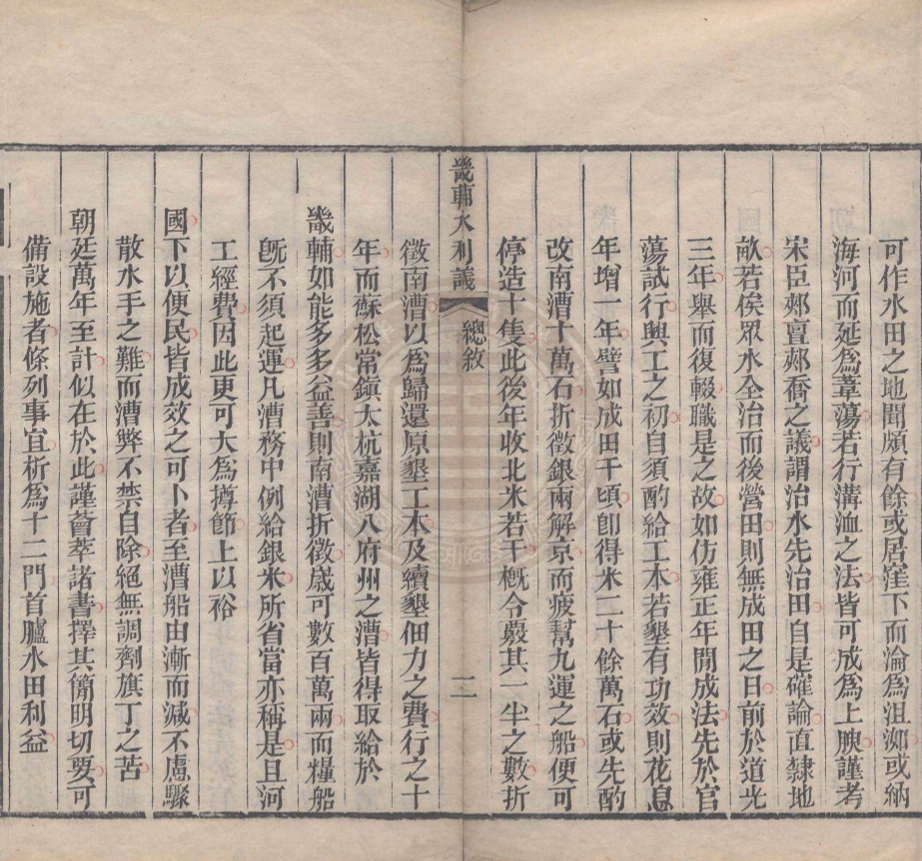 可作水田之地聞頗有餘或居窪下而淪爲沮洳或納
海河而延爲葦蕩若行溝洫之法皆可成爲上腴謹考
宋臣郟亶郟喬之議謂治水先治田自是確論直隸地
畝若俟眾水全治而後營田則無成田之日前於道光
三年舉而復輟職是之故如仿雍正年間成法先於官
蕩試行興工之初自須酌給工本若墾有功效則花息
年增一年譬如成田千頃卽得米二十餘萬石或先酌
改南漕十萬石折徵銀兩解京而疲幫九運之船便可
停造十隻此後年收北米若干概令覈其一半之數折
畿輔水利議
總敘
二
徵南漕以爲歸還原墾工本及續墾佃力之費行之十
年而蘇松常鎮太杭嘉湖八府州之漕皆得取給於
畿輔如能多多益善則南漕折徵歲可數百萬兩而糧船
旣不須起運凡漕務中例給銀米所省當亦稱是且河
工經費因此更可大爲撙節上以裕
國下以便民皆成效之可卜者至漕船由漸而減不慮驟
散水手之難而漕弊不禁自除絕無調劑旗丁之苦
朝廷萬年至計似在於此謹薈萃諸書擇其簡明切要可
備設施者條列事宜析爲十二門首臚水田利益